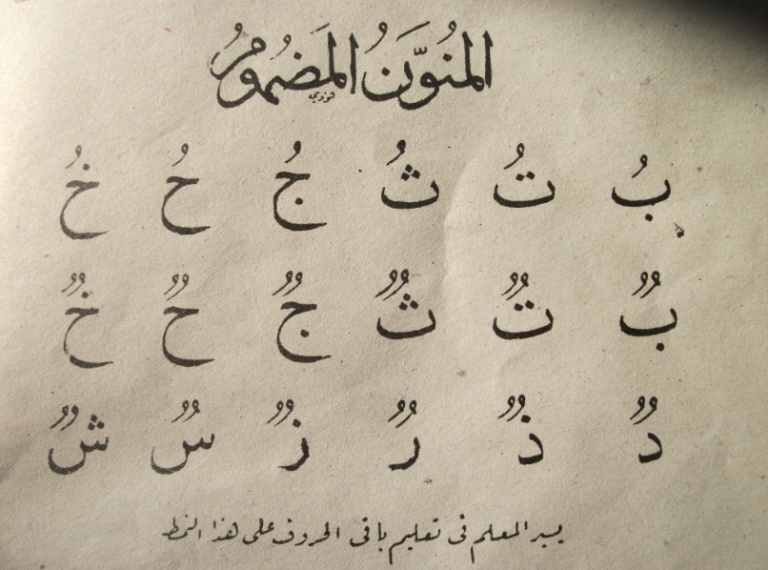 المُنَوَّنُ المَضمُومُ
بُ تُ ثُ جُ حُ خُ
بٌ تٌ ثٌ جٌ حٌ خٌ
دٌ ذٌ رٌ زٌ سٌ شٌ
يسير المعلم فى تعليم باقى الحروف على هذا النمط